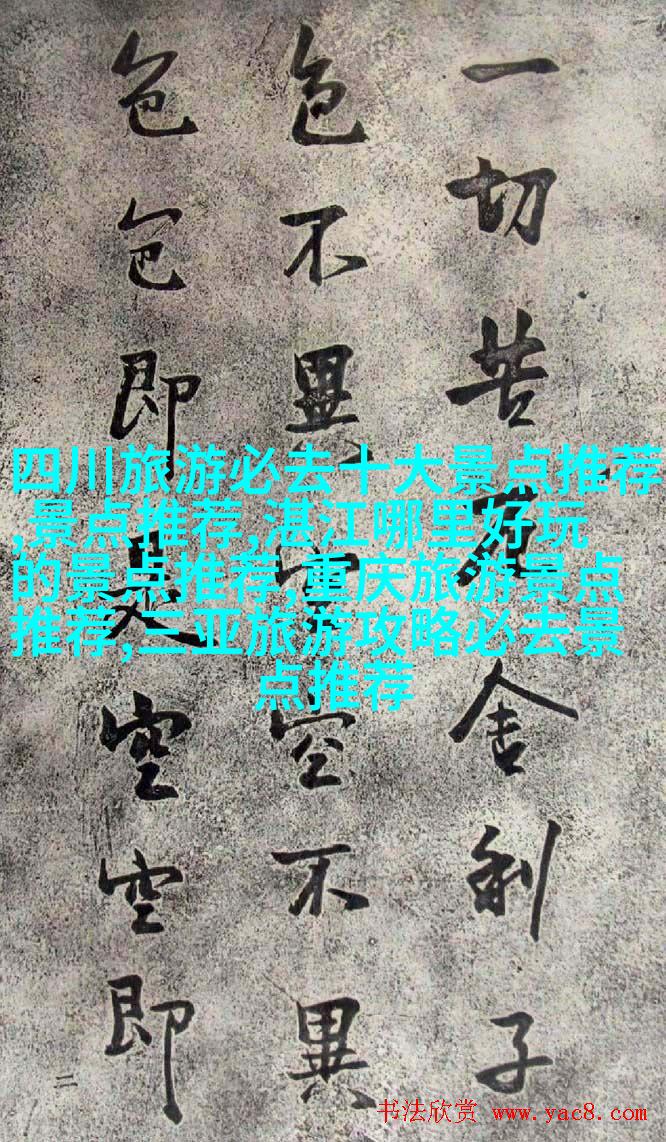 一切苦厄舍利子
色不異空空不異
色色即是空空即
二
四川旅游必去十大景点推荐
,景点推荐,湛江哪里好玩
的景点推荐,重庆旅游景点
推荐,三亚旅游攻略必去景
点推荐
书法欣赏 www.yac8.com